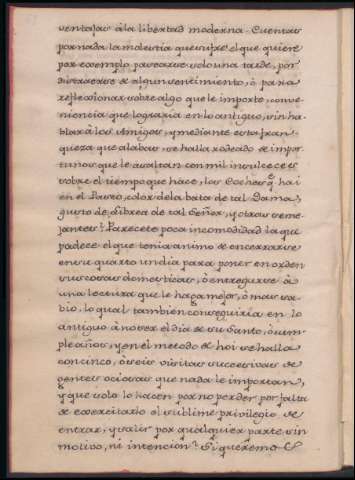 ventajas à la libertad moderna. Cuentas
por nada la molestia que sufre el que quiere
por exemplo pasearse solo una tarde, por
distraerse de algun sentimiento, ó para
reflexionar sobre algo que le importe, conve-
niencia que lograria en lo antiguo, sin ha-
blar à los Amigos, y mediante esta fran-
queza que alabas, se halla rodeado de impor-
tunos que le asaltan con mil insulseces
sobre el tiempo que hace, los Coches q̃ hai
en el Paseo, color de la bata de tal Dama,
gusto de Librea de tal Señor, y otras seme-
jantes? Parecete poca incomodidad la que
padece el que tenia animo de encerrarse
en su quarto un dia para poner en orden
sus cosas domesticas, ò entregarse à
una lectura que le haga mejor, ò mas sa-
bio, lo qual tambien conseguiria en lo
antiguo à no ser el dia de su Santo, ò cum-
ple años, y en el metodo de hoi se halla
con cinco, ò seis visitas succesivas de
gentes ociosas que nada le importan,
y que solo lo hacen por no perder por falta
de exercitarlo el sublime privilegio de
entrar, y salir por qualquier parte sin
motivo, ni intencion? Si queremos